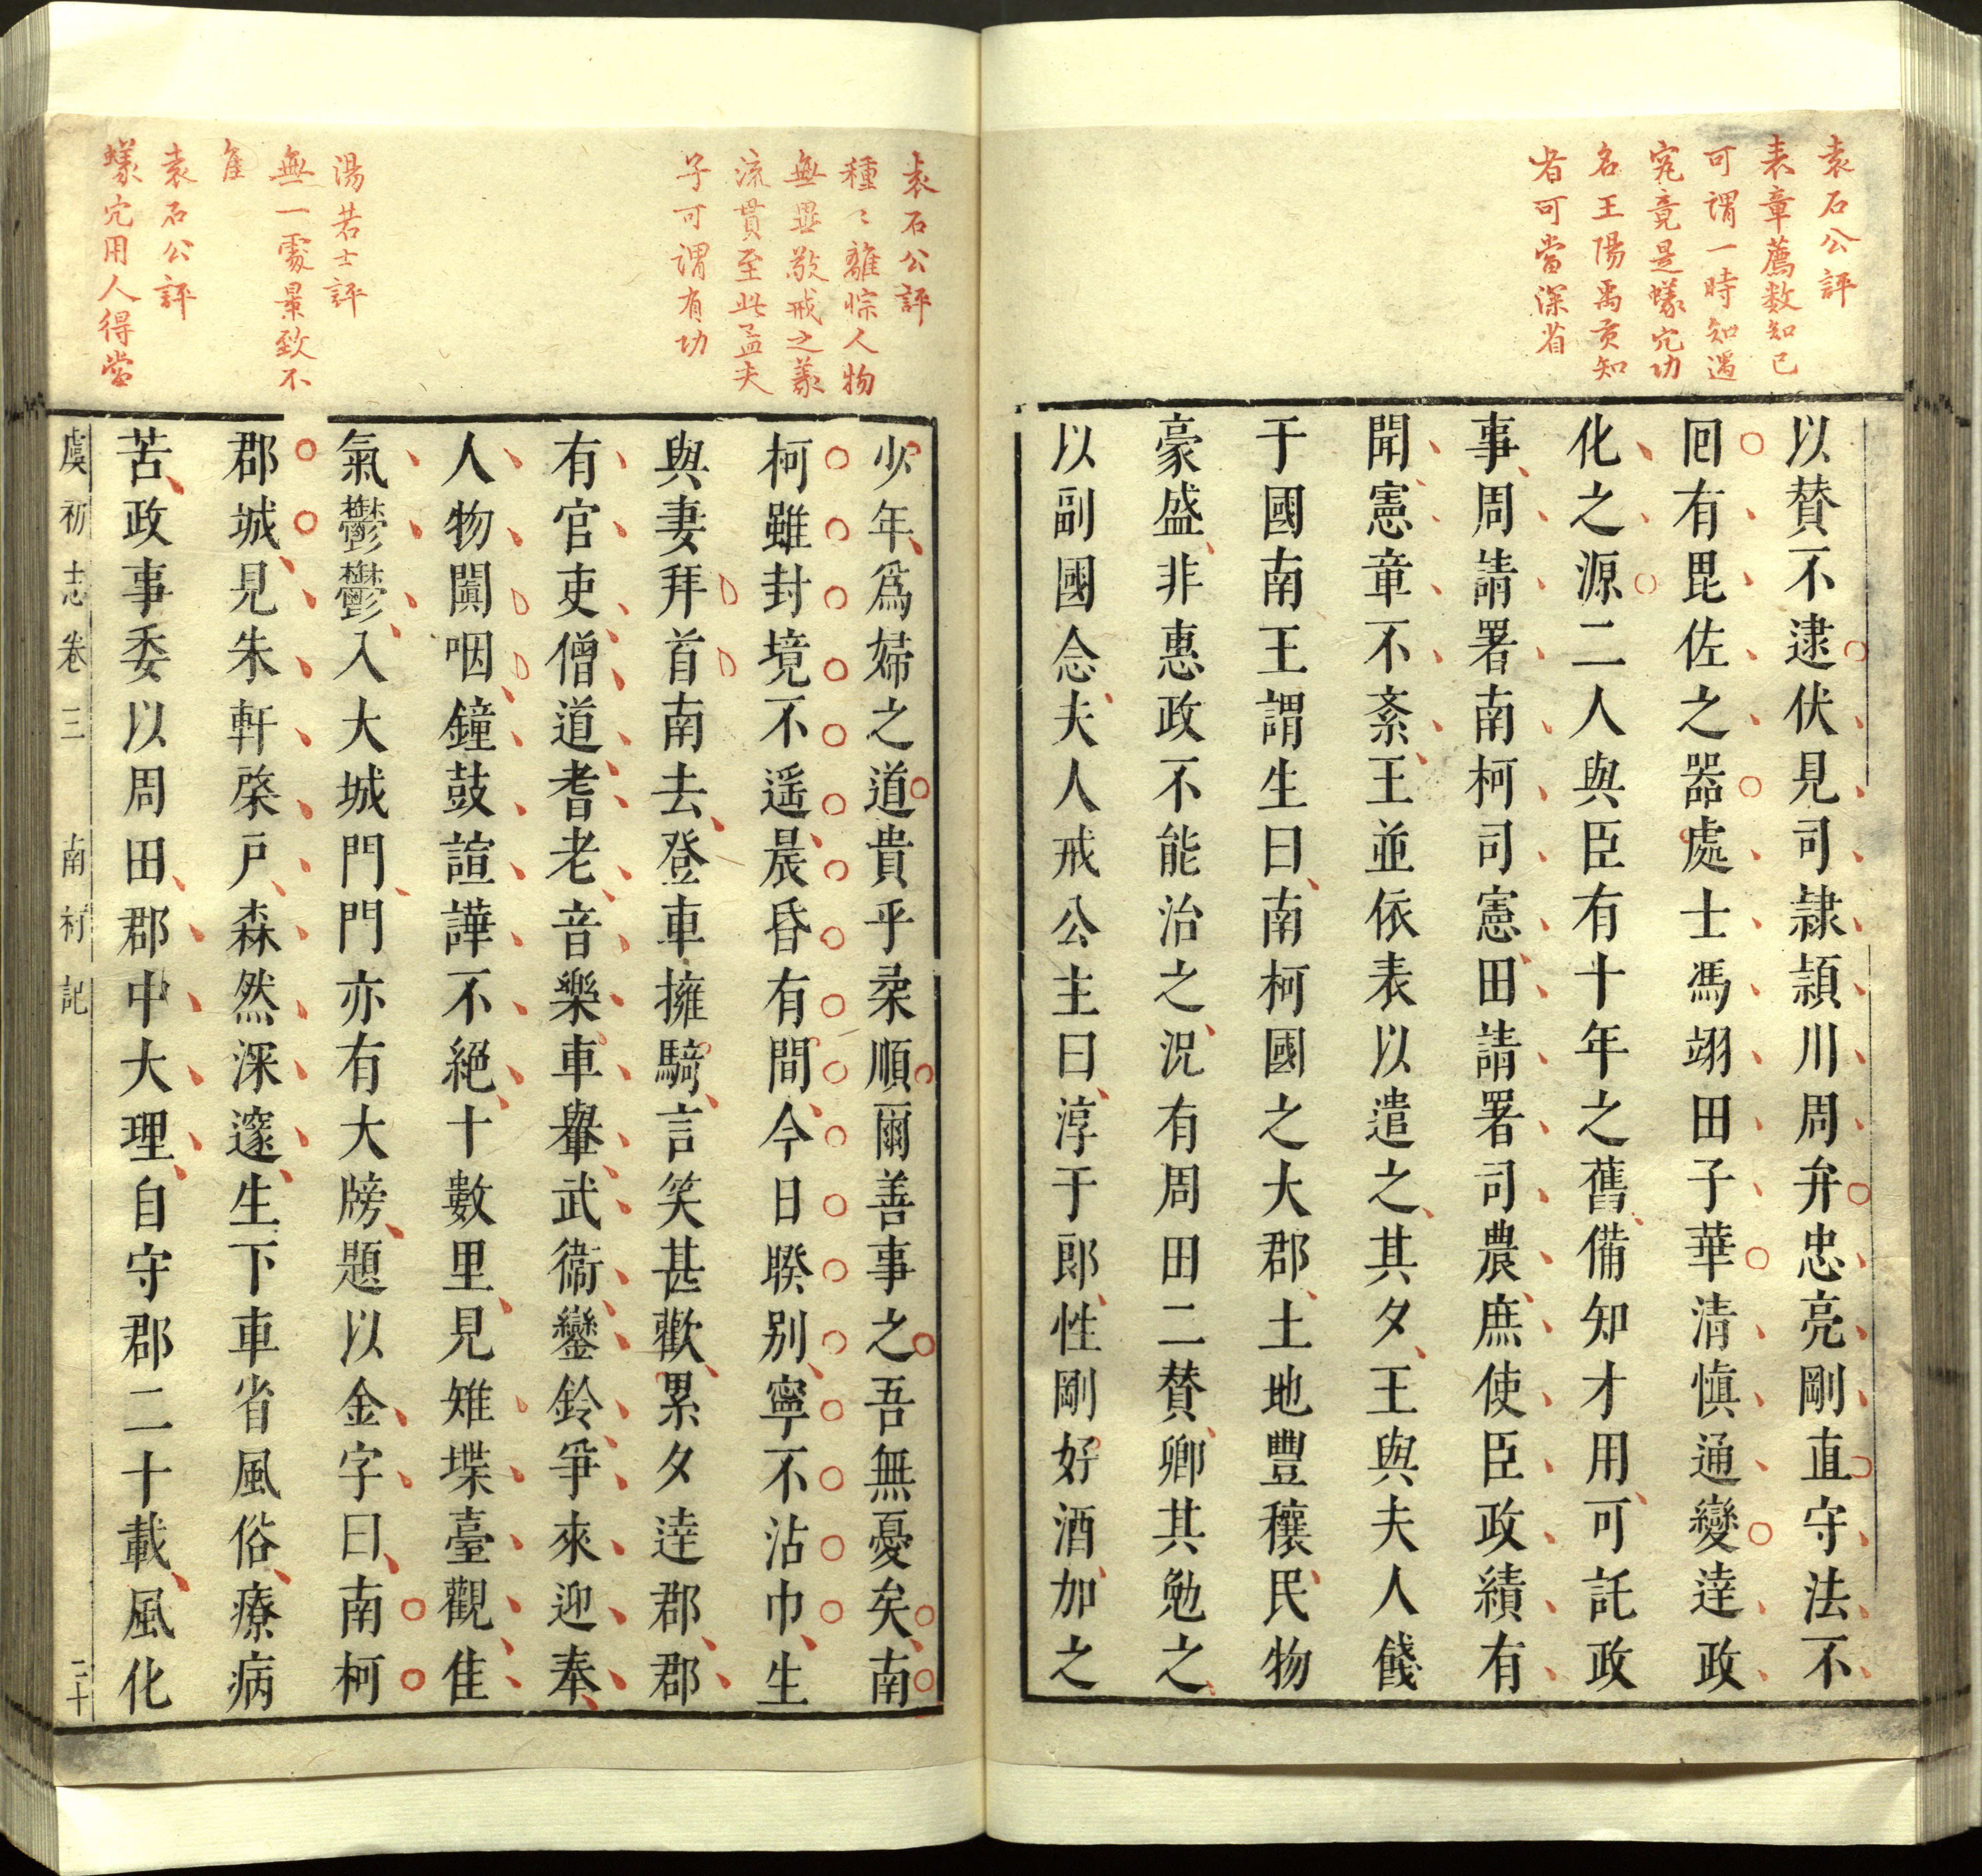 袁石公評
表章薦数知已
可謂一時知遇
究竟是蟻穴功
名王陽禹貢知
者可當深省
以賛不逮伏見司隷頴川周弁忠亮剛直守法不
囘有毘佐之器處士馮翊田子華清愼通變逹政
化之源二人與臣有十年之舊備知才用可託政
事周請署南柯司憲田請署司農庶使臣政績有
聞憲章不紊王並依表以遣之其夕王與夫人餞
于國南王謂生曰南柯國之大郡土地豐穰民物
豪盛非惠政不能治之況有周田二賛卿其勉之
以副國念夫人戒公主曰淳于郎性剛好酒加之
袁石公評
種〻離悰人物
無異敬戒之義
流貫至此孟夫
子可謂有功
湯若士評
無一處景致不
隹
袁石公評
蟻穴用人得當
少年爲婦之道貴乎柔順爾善事之吾無憂矣南
柯雖封境不遥晨昏有間今日睽别寧不沾巾生
與妻拜首南去登車擁騎言笑甚歡累夕逹郡郡
有官吏僧道耆老音樂車轝武衞鑾鈴爭來迎奉
人物闐咽鐘鼓諠譁不絕十數里見雉堞臺觀佳
氣鬱鬱入大城門門亦有大牓題以金字曰南柯
郡城見朱軒棨戸森然深邃生下車省風俗療病
苦政事委以周田郡中大理自守郡二十載風化
虞初志卷三 南柯記 二十